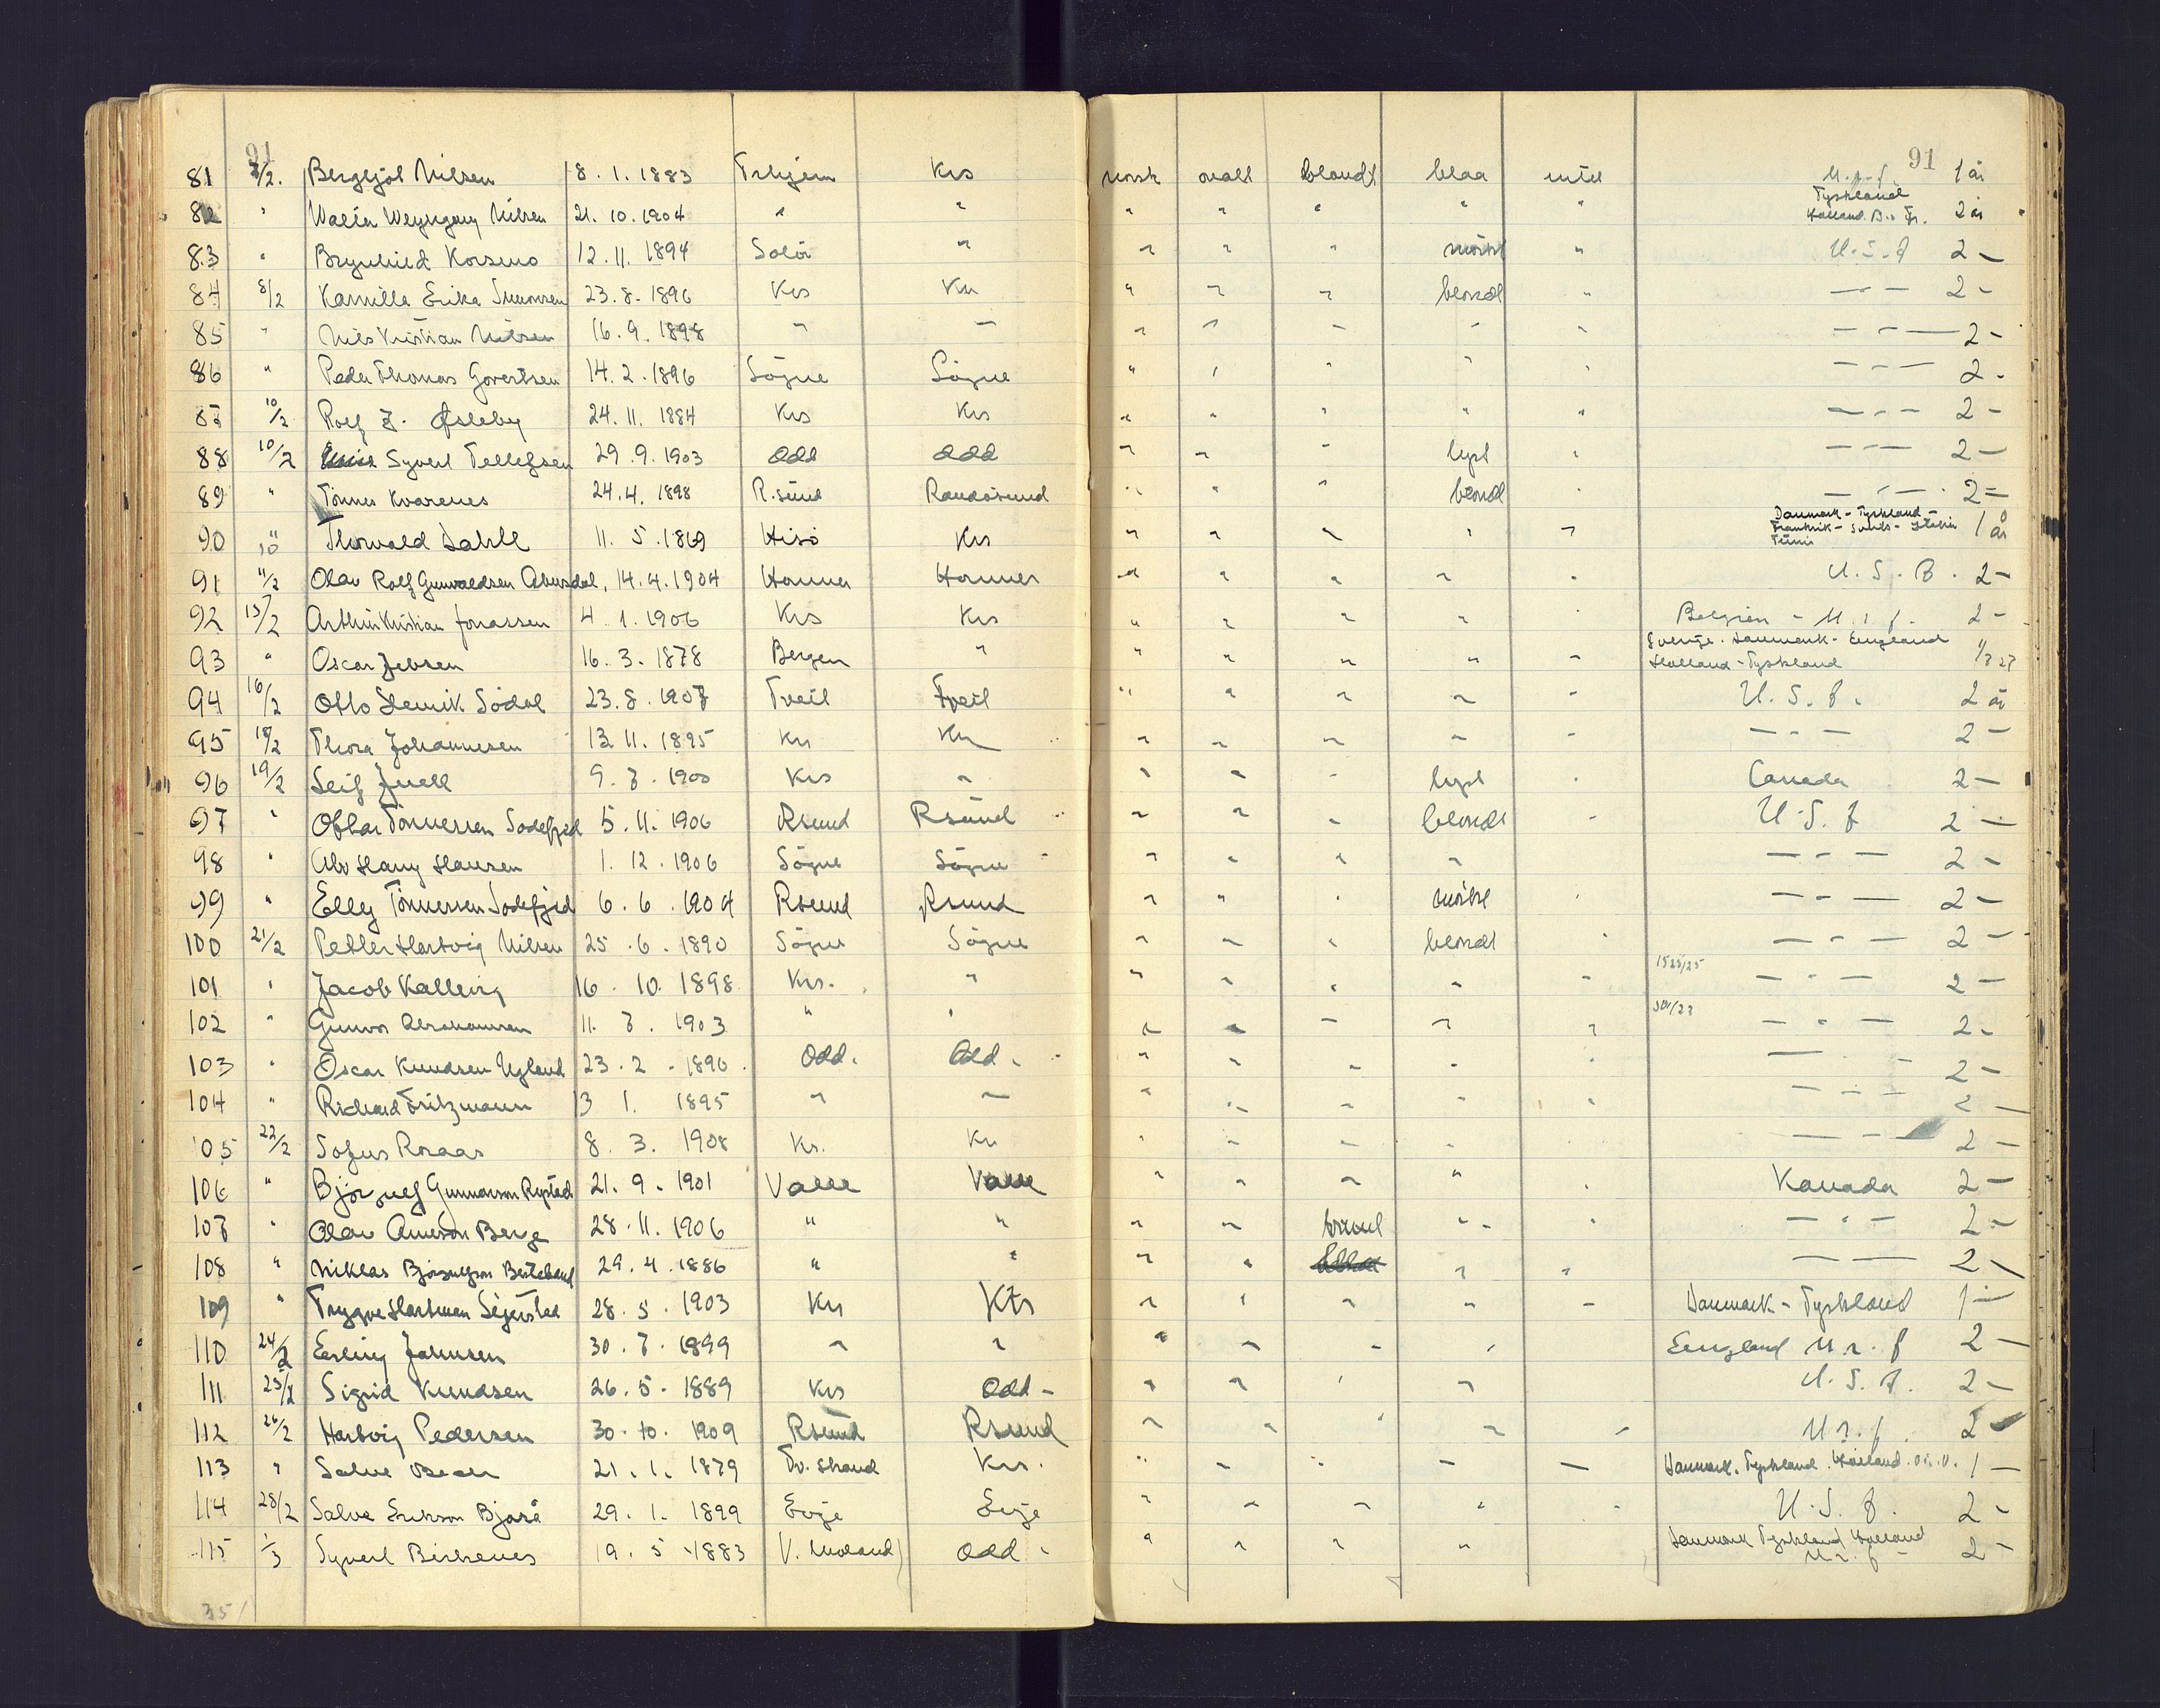 91 91
81 7/2. Bergljot Nilsen 8.1.1883 Trhjem Krs norsk ovalt blondt blaa intet U.S. 1 år
82 " Nilsen 21.10.1904 " " " " " " " Tyskland Holland. B. Fr. 2 år
83 " Brynhild Korsmo 12.11.1894 Solør " " " " mörkt " U.S.A 2 –
84 8/2 Kamilla Erika Simonsen 23.8.1896 Krs Krs " " " blondt " – " – 2 –
85 " Nils Kristian Nilsen 16.9.1898 " " " " " " " – " – 2 –
86 " Peder Thomas Govertsen 14.2.1896 Sögne Sögne " " " " " – " – 2 –
87 10/2 Rolf J. Øsleby 24.11.1884 Krs Krs " " " " " – " – 2 –
88 10/2 Syvert Tellefsen 29.9.1903 Odd Odd " " " lyst " – " – 2 –
89 " Tönnes Kvarenes 24.4.1898 R.sund Randösund " " " blondt " – " – 2 –
90 " 10 Thorvald Dahll 11.5.1869 Hisö Krs " " " " " Danmark – Tyskland – Frankrik – – Italien Tunis 1 år
91 11/2 Olav Rolf Gunvaldsen Abusdal, 14.4.1904 Hornnes Hornnes " " " " " U.S.A. 2 –
92 15/2 Arthur Kristian Jonassen 4.1.1906 Krs Krs " " " " " Belgien – U.S.A. 2 –
93 " Oscar Jebsen 16.3.1878 Bergen " " " " " " Sverige. Danmark – England Holland – Tyskland 1/3 27
94 16/2 Otto Henrik Södal 23.8.1907 Tveit Tveit " " " " " U.S.A. 2 år
95 18/2 Thora Johannesen 13.11.1895 Krs Krs " " " " " – " – 2 –
96 19/2 Leif Juell 9.7.1900 Krs " " " " lyst " Canada 2 –
97 " Ottar Tönnessen Sodefjed 5.11.1906 Rsund Rsund " " " blondt " U.S.A 2 –
98 " Alv Hauy Hansen 1.12.1906 Sögne Sögne " " " " – " – 2 –
99 " Elly Tönnessen Sodefjed 6.6.1904 Rsund Rsund " " " mörkt " – " – 2 –
100 21/2 Petter Hartvig Nilsen 25.6.1890 Sögne Sögne " " " blondt " – " – 2 –
101 " Jacob Kallevig 16.10.1898 Krs. " " " " " " 1525/25 – " – 2 –
102 " Gunvor Abrahamsen 11.7.1903 " " " " " " " /23 – " – 2 –
103 " Oscar Knudsen Ugland 23.2.1890. Odd. Odd. " " " " " – " – 2 –
104 " Richard Fritzmann 3 1. 1895 " " " " " " " – " – 2 –
105 22/2 Sofus Rosaas 8.3.1908 Kr. Kr " " " " " – " – 2 –
106 " Björgulf Gunnarson Rysstad 21.9.1901 Valle Valle " " " " " Kanada 2 –
107 " Olav Arneson Berg 28.11.1906 " " " " brunt " " – " – 2 –
108 " Niklas Björgulfson Besteland 29.4.1886 " " " " " " – – 2 –
109 " Trygve Hartman Sejersted 28.5.1903 Krs Krs " " " " " Danmark – Tyskland 1 –
110 24/2 Erling Johnsen 30.7.1899 " " " " " " England U.S.A 2 –
111 25/2 Sigrid Knudsen 26.5.1889 Krs Odd – " " " " U.S.A. 2 –
112 26/2 Hartvig Pedersen 30.10.1909 Rsund Rsund " " " " " U.S.A. 2 –
113 " Salve 21.1.1879 Tv. strand Krs. " " " " " Danmark. Tyskland. Holland. 1 –
114 28/2 Salve Erikson Bjorå 29.1.1899 Evje Evje " " " " " U.S.A. 2 –
115 1/3 Syvert Birkenes 19.5.1883 V. Moland Odd. " " " " Danmark Tyskland Holland U.S.A 2 –
35/